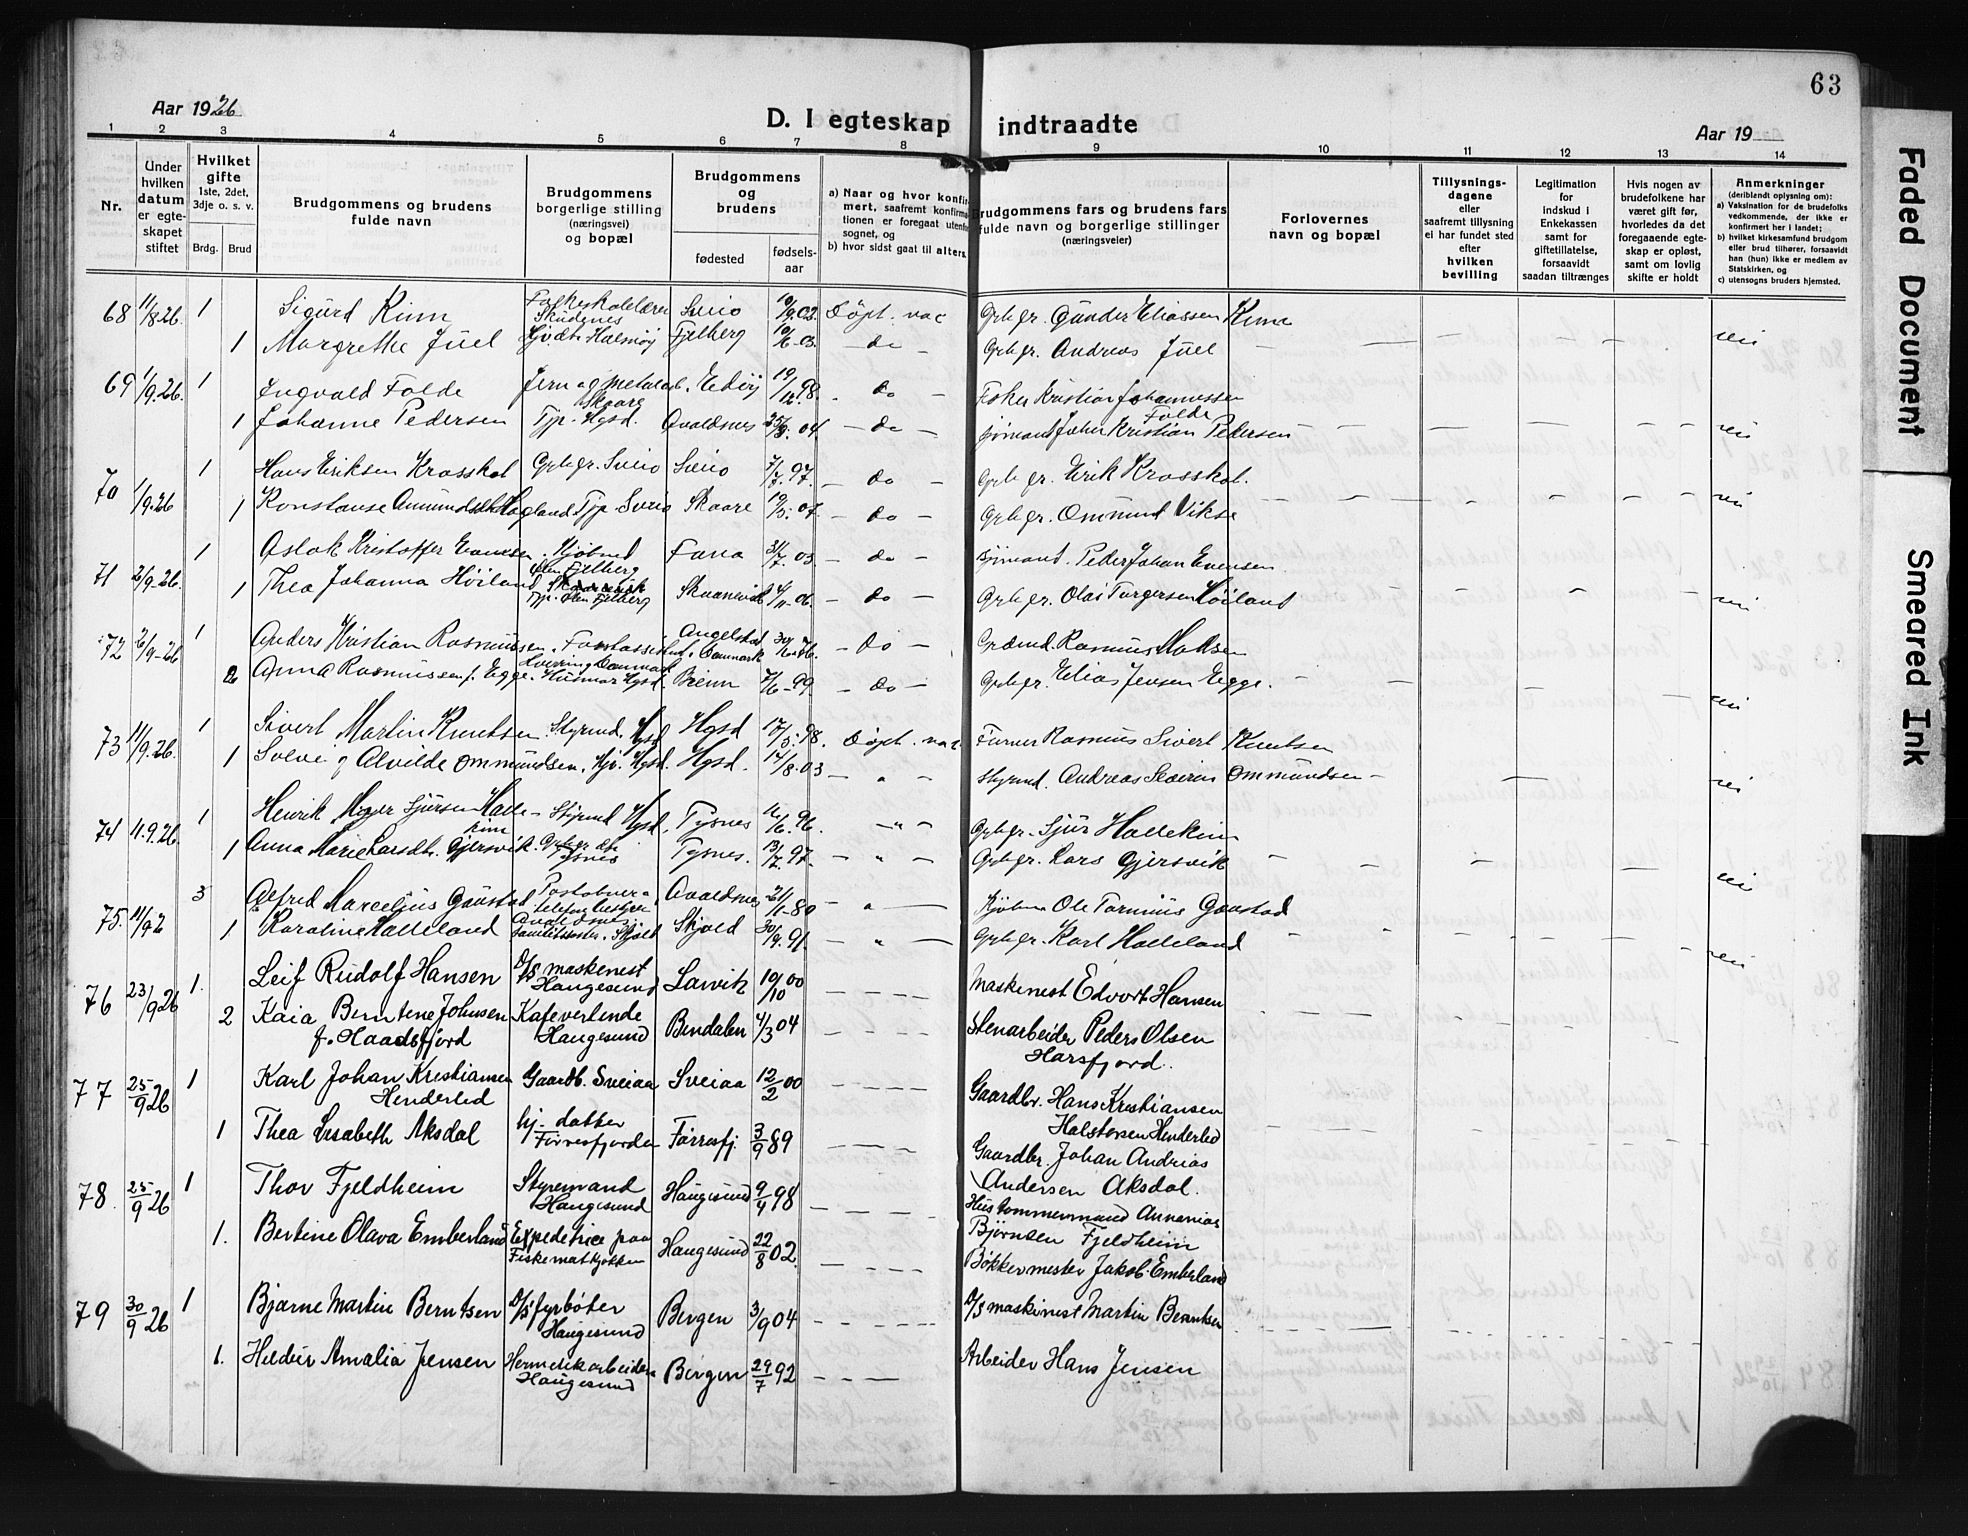 63
Aar 1926
D. I egteskap indtraadte
Aar 19
1 2 3 4 5 6 7 8 9 10 11 12 13 14
Nr.
Under hvilken datum er egteskapet stiftet
Hvilket gifte 1ste, 2det, 3dje o. s. v.
Brdg. Brud
Brudgommens og brudens fulde navn
Brudgommens borgerlige stilling (næringsvei) og bopæl
Brudgommens og brudens
fødested
fødselsaar
a) Naar og hvor konfirmert, saafremt konfirmationen er foregaat utenfor sognet, og
b) hvor sidst gaat til alters.
Brudgommens fars og brudens fars fulde navn og borgerlige stillinger (næringsveier)
Forlovernes navn og bopæl
Tillysningsdagene eller saafremt tillysning ei har fundet sted efter hvilken bevilling
Legitimation for indskud i Enkekassen samt for giftetillatelse, forsaavidt saadan tiltrænges
Hvis nogen av brudefolkene har været gift før, hvorledes da det foregaaende egteskap er opløst, samt om lovlig skifte er holdt
Anmerkninger (deriblandt oplysning om):
a) Vaksination for de brudefolks vedkommende, der ikke er konfirmert her i landet;
b) hvilket kirkesamfund brudgom eller brud tilhører, forsaavidt han (hun) ikke er medlem av Statskirken, og
c) utensogns bruders hjemsted.
68 11/8 26 1 Sigurd Rinn Skudenes Sveio 10/9 02 Døpt. vac Grbgr. Gunder Eliassen
1 Margrethe Juel Fjelberg 10/6-03 do Grbgr. Andreas Juel nei
69 1/9 26 1 Ingvald Folde Jern og metalarb. Skaare Edøy 19/12 98 do Fisker Kristian Johannessen Folde
1 Johanne Pedersen Tjp. Hgsd. Avaldsnes 25/3 04 do Johan Kristian Pedersen nei
70 1/9 26 1 Hans Eriksen Krosskol Grbgr. Sveio Sveio 7/7 97 do Grbgr. Erik Krosskol.
1 Konstanse Tjp. Sveio Skaare 19/5 07 do Grbgr. Ommund Vikse nei
71 2/9 26 1 Aslak Kristoffer Evensen Kjøbmd Ølen Fjelberg Fana 31/7 03 do Peder Johan Evensen
1 Thea Johanna Høiland Tjp. Ølen Fjelberg Skaanevik 24/11 06 do Grbgr. Olai Torgersen Høiland nei
72 2/9-26 1 Anders Kristian Rasmussen. Danmark 76 do Rasmus Madsen
2 Anna Rasmussen f. Egge. Husmor Hgsd. 7/6-99 do Grbgr. Elias Jensen Egge. nei
73 11/9 26 1 Sivert Martin Knutsen Styrmd. Hgsd Hgsd 17/5 98 Døpt. vac Rasmus Sivert Knutsen
1 Solveig Alvilde Ommundsen. Hjv. Hgsd. Hgsd. 14/8 03 Styrmd. Andreas Severin Ommundsen nei
74 11.9.26 1 Henrik Meyer Sjursen Hallekim Styrmd Hgsd. Tysnes 96 Grbgr. Sjur Hallekim
1 Anna Marie Larsdtr. Gjersvik. Grbgr. dtr Tysnes Tysnes. 13/7 97 Grbgr. Lars Gjersvik nei
75. 11/9 2 3 Alfred Marcelius Gaustad Avaldsnes 80 Kjøbm Ole Gaustad
1 Karoline Halleland Skjold Skjold 30/9 91 Grbgr. Karl Halleland nei
76 23/9 26 1. Leif Rudolf Hansen D/s maskinest Haugesund Larvik 10/10 00 Maskinest Edvart Hansen
2 Kaia Berntine Johnsen f. Haadsfjord Kafevertinde Haugesund Bindalen 4/3 04 Stenarbeider Peder Olsen Harsfjord.
77 25/9 26 1 Karl Johan Kristiansen Henderlid Gaardb. Sveiaa Sveiaa 12/2 00 Gaardbr. Hans Kristiansen Halstensen Henderlid
1 Thea Lisabeth Aksdal hj. datter Førresfjorden Førresfj. 3/9 89 Gaardbr. Johan Andrias Andersen Aksdal.
78. 25/9 26 1 Thor Fjeldheim Styremand Haugesund Haugesund 9/4 98 Hustømmermand Annanias Bjørnsen Fjeldheim
1. Bertine Olava Emberland Expeditrice paa Fiskematkjøkken Haugesund 22/8 02. Bøkkermester Jakob Emberland
79 30/9 26 1 Bjarne Martin Berntsen D/s fyrbøter Haugesund Bergen 3/9 04 D/s maskinest Martin Berntsen
1. Hildur Amalia Jensen Hermetikarbeider Haugesund Bergen 29/7 92 Arbeider Hans Jensen
Faded Document
Smeared Ink